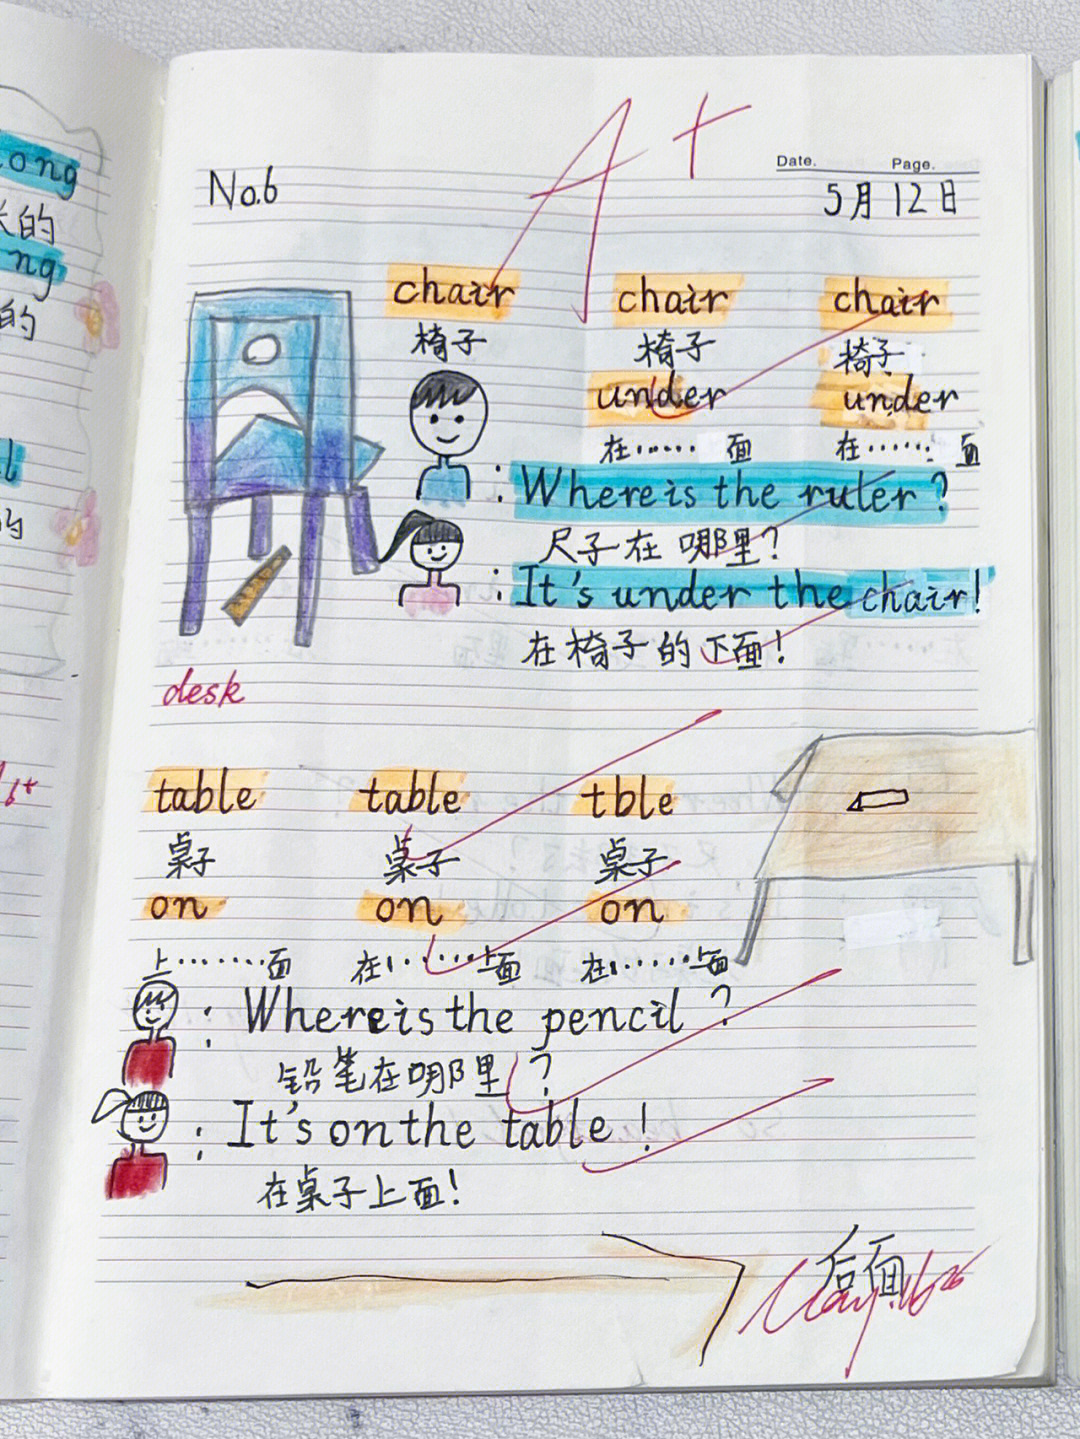 A+
Date. Page.
No.6 5月12日
chair chair chair
椅子 椅子 椅子
under under
在…… 面 在…… 面
: Where is the ruler?
尺子在哪里?
: It's under the chair!
在椅子的下面!
desk
table table tble
桌子 桌子 桌子
on on on
上……面 在……上面 在……上面
: Where is the pencil?
铅笔在哪里?
: It's on the table!
在桌子上面!
后面
ong
长的
ng
的